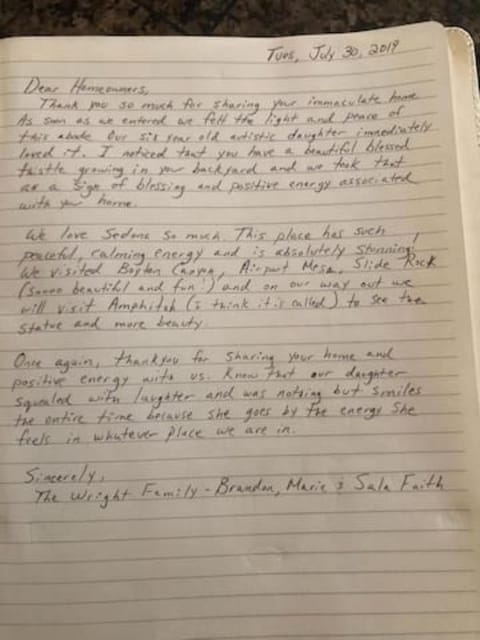 Tues, July 30, 2019
Dear Homeowners,
Thank you so much for sharing your immaculate home.
As soon as we entered we felt the light and peace of
this abode. Our six year old artistic daughter immediately
loved it. I noticed that you have a beautiful blessed
thistle growing in your backyard and we took that
as a sign of blessing and positive energy associated
with your home.
We love Sedona so much. This place has such
peaceful, calming energy and is absolutely stunning!
We visited Boyton Canyon, Airport Mesa, Slide Rock
(soooo beautiful and fun!) and on our way out we
will visit Amphitah (i think it is called) to see the
statue and more beauty.
Once again, thankyou for sharing your home and
positive energy with us. Know that our daughter
squealed with laughter and was nothing but smiles
the entire time because she goes by the energy she
feels in whatever place we are in.
Sincerely,
The Wright Family - Brandon, Marie & Sala Faith